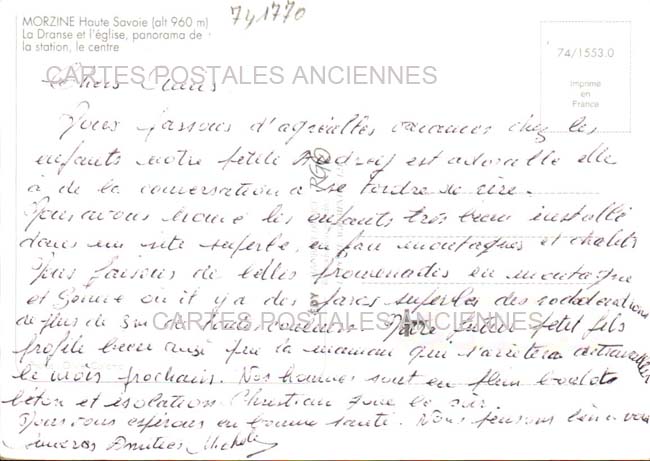 MORZINE Haute Savoie (alt 960 m)
La Dranse et l'église, panorama de
la station, le centre
74/1770
74/1553.0
Imprimé
en
France
CARTES POSTALES ANCIENNES
Chers Amis
Nous passons d'agréables vacances chez les
enfants notre petite est adorable elle
à de la conversation a se tordre de rire.
Nous avons trouvé les enfants très bien installé
dans un site superbe, en face montagnes et chalets
Nous faisons de belles promenades en montagne
et où il y a des parcs superbes des rododendrons
de plus de 3m de toutes couleurs. Notre petit fils
CARTES POSTALES ANCIENNES
profite bien ainsi que la maman qui s'arrêtera de travailler
le mois prochain. Nos hommes sont en plein boulot
béton et isolation Christian
Nous vous espérons en bonne santé. Nous pensons bien à vous
Sincères Amitiés Michel